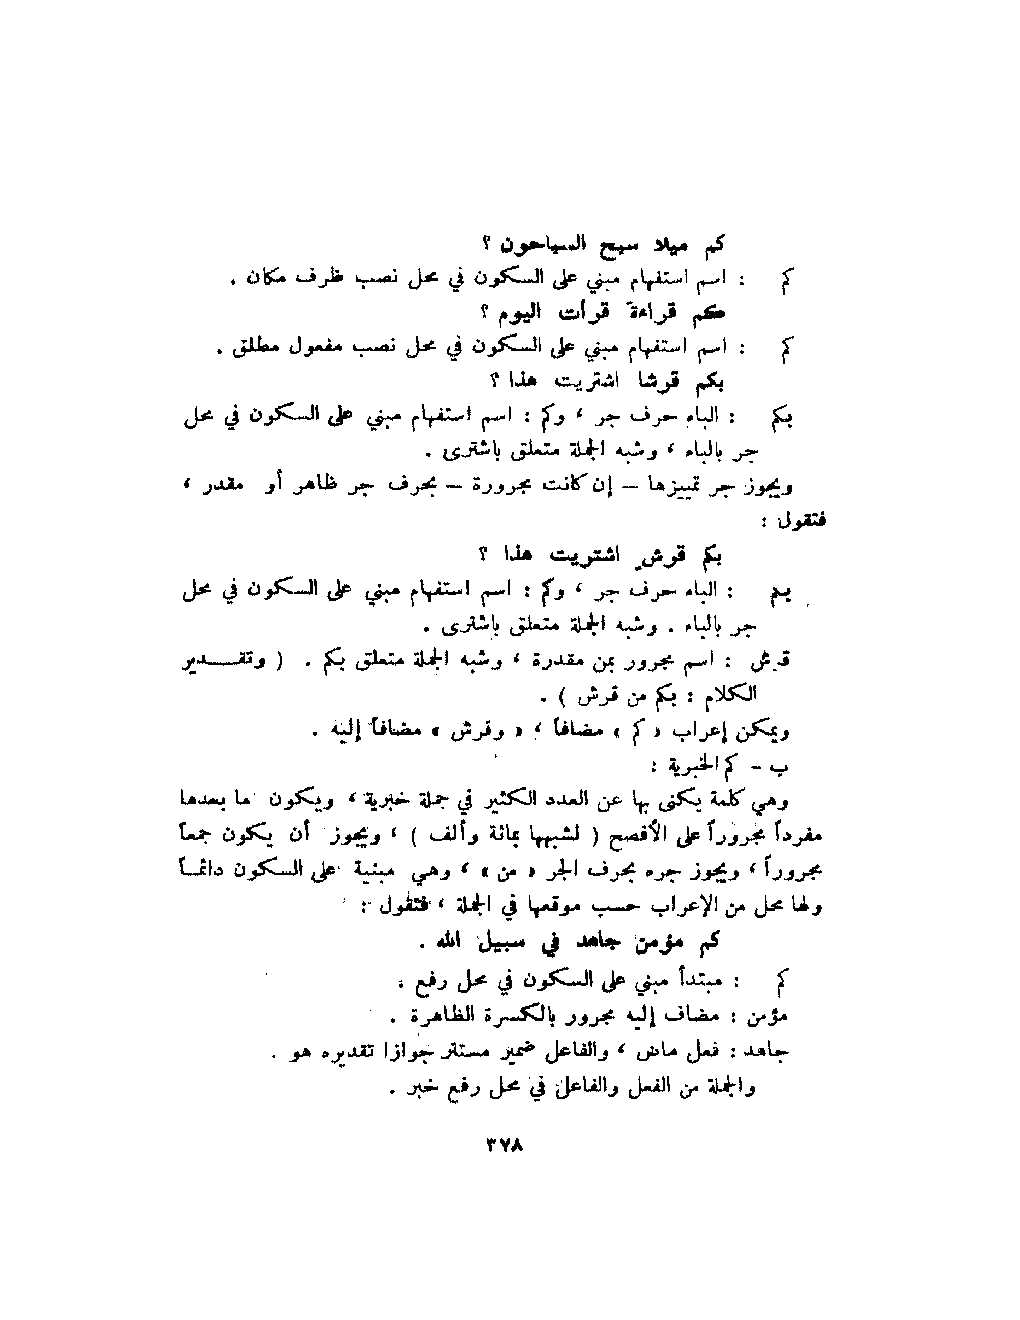 كم ميلا سبح السباحون ؟
كم : اسم استفهام مبني على السكون في محل نصب ظرف مكان .
كم قراءة قرأت اليوم ؟
كم : اسم استفهام مبني على السكون في محل نصب مفعول مطلق .
بكم قرشا اشتريت هذا ؟
بكم : الباء حرف جر ، وكم : اسم استفهام مبني على السكون في محل
جر بالباء ، وشبه الجملة متعلق باشترى .
ويجوز جر تمييزها – إن كانت مجرورة – بحرف جر ظاهر أو مقدر ،
فتقول :
بكم قرشٍ اشتريت هذا ؟
بكم : الباء حرف جر ، وكم : اسم استفهام مبني على السكون في محل
جر بالباء . وشبه الجملة متعلق باشترى .
قرش : اسم مجرور بمن مقدرة ، وشبه الجملة متعلق بكم . ( وتقـــدير
الكلام : بكم من قرش ) .
ويمكن إعراب « كم » مضافاً ، « وقرش » مضافاً إليه .
ب - كم الخبرية :
وهي كلمة يكنى بها عن العدد الكثير في جملة خبرية ، ويكون ما بعدها
مفرداً مجروراً على الأفصح ( لشبهها بمائة وألف ) ، ويجوز أن يكون جمعاً
مجروراً ، ويجوز جره بحرف الجر « من » ، وهي مبنية على السكون دائمـاً
ولها محل من الإعراب حسب موقعها في الجملة ، فتقول :
كم مؤمن جاهد في سبيل الله .
كم : مبتدأ مبني على السكون في محل رفع .
مؤمن : مضاف إليه مجرور بالكسرة الظاهرة .
جاهد : فعل ماض ، والفاعل ضمير مستتر جوازا تقديره هو .
والجملة من الفعل والفاعل في محل رفع خبر .
٣٧٨